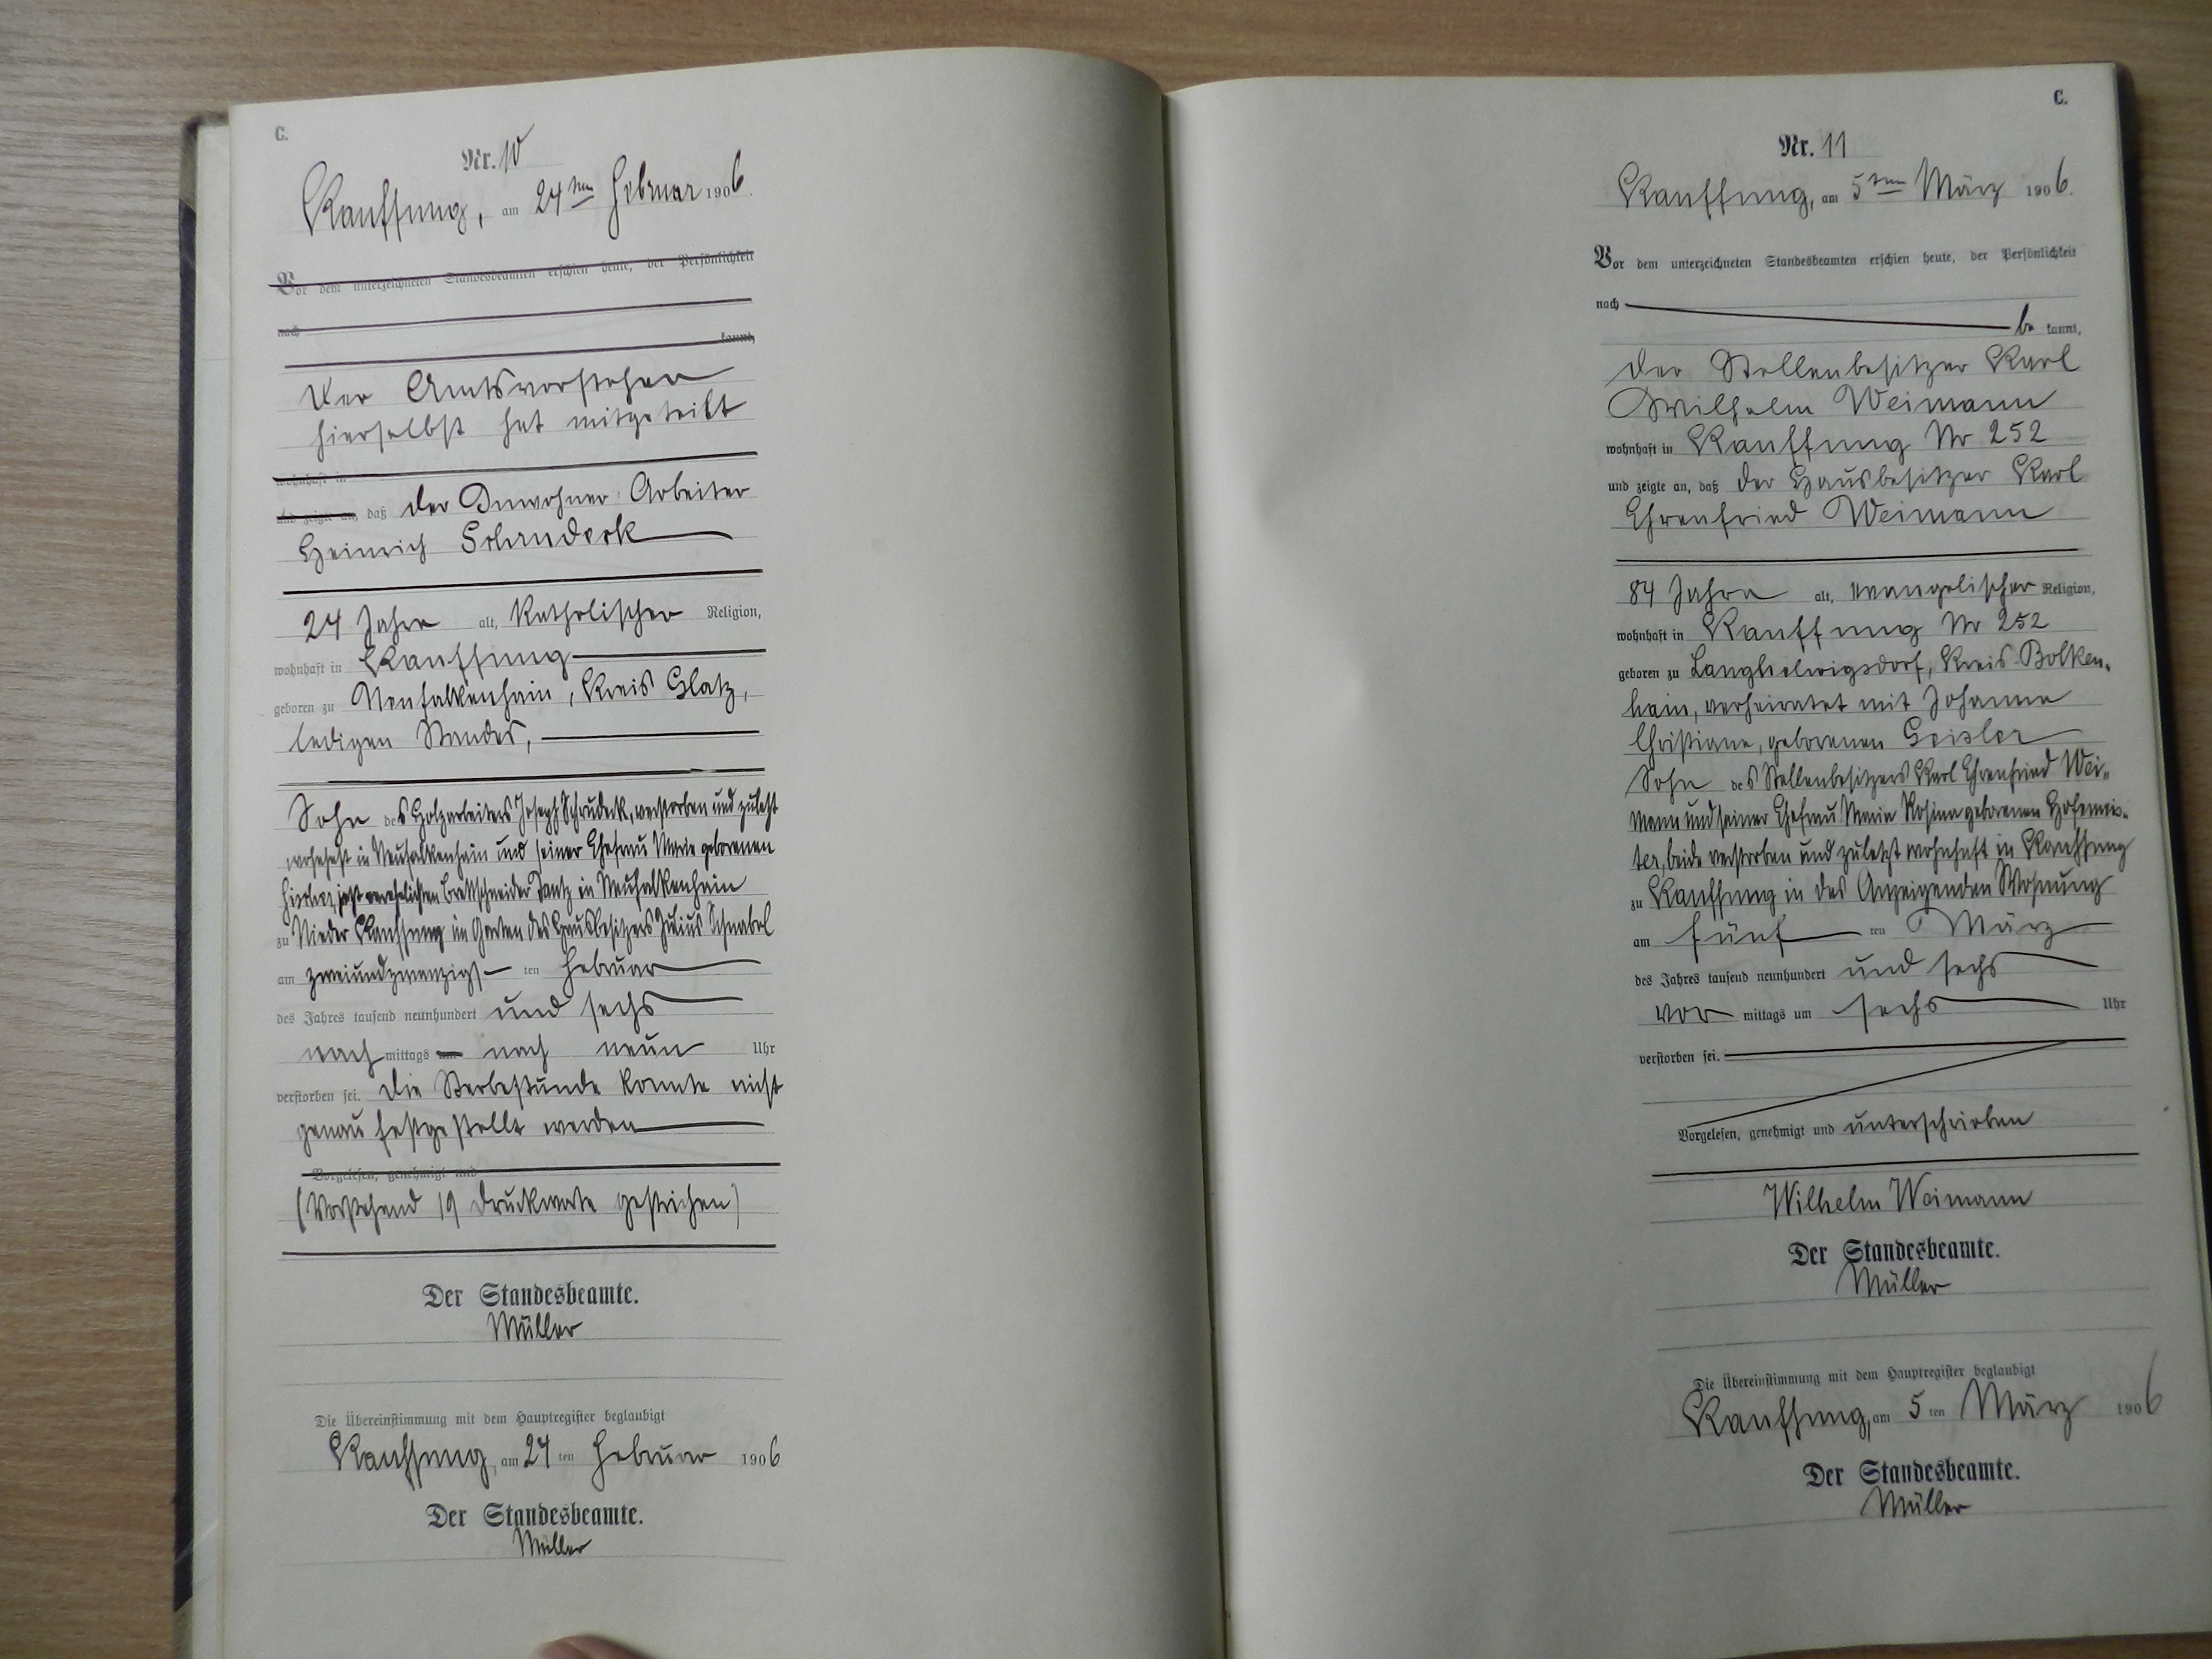 C.
Nr. 10
Kauffung, am 24ten Februar 1906.
Vor dem unterzeichneten Standesbeamten erschien heute, der Persönlichkeit
nach
kannt,
Der Amtsvorsteher
hierselbst hat mitgeteilt
wohnhaft in
und zeigte an, daß der Inwohner Arbeiter
Heinrich Schrudeck
24 Jahre alt, katholischer Religion,
wohnhaft in Kauffung
geboren zu Neufalkenhain, Kreis Glatz,
ledigen Standes,
Sohn des Holzarbeiters Joseph Schrudeck, verstorben und zuletzt
wohnhaft in Neufalkenhain und seiner Ehefrau Marie geborenen
jetzt verehelichten Brettschneider in Neufalkenhain
zu Nieder Kauffung im Garten des Hausbesitzers Julius Schnabel
am zweiundzwanzigsten Februar
des Jahres tausend neunhundert und sechs
nach mittags um nach neun Uhr
verstorben sei. Die Sterbestunde konnte nicht
genau festgestellt werden
Vorgelesen, genehmigt und
(Vorstehend 19 Druckworte gestrichen)
Der Standesbeamte.
Müller
Die Übereinstimmung mit dem Hauptregister beglaubigt
Kauffung, am 24 ten Februar 1906
Der Standesbeamte.
Müller
C.
Nr. 11
Kauffung, am 5ten März 1906.
Vor dem unterzeichneten Standesbeamten erschien heute, der Persönlichkeit
nach
be kannt,
der Stellenbesitzer Karl
Wilhelm Weimann
wohnhaft in Kauffung Nr 252
und zeigte an, daß der Hausbesitzer Karl
Ehrenfried Weimann
84 Jahre alt, evangelischer Religion,
wohnhaft in Kauffung Nr 252
geboren zu Langhelwigsdorf, Kreis Bolken-
hain, verheiratet mit Johanne
Christiane, geborenen Geisler
Sohn des Stellenbesitzers Karl Ehrenfried Wei-
mann und seiner Ehefrau Maria Rosina geborenen Hofemeis-
ter, beide verstorben und zuletzt wohnhaft in Kauffung
zu Kauffung in des Anzeigenden Wohnung
am fünf ten März
des Jahres tausend neunhundert und sechs
vor mittags um sechs Uhr
verstorben sei.
Vorgelesen, genehmigt und unterschrieben
Wilhelm Weimann
Der Standesbeamte.
Müller
Die Übereinstimmung mit dem Hauptregister beglaubigt
Kauffung, am 5 ten März 1906
Der Standesbeamte.
Müller